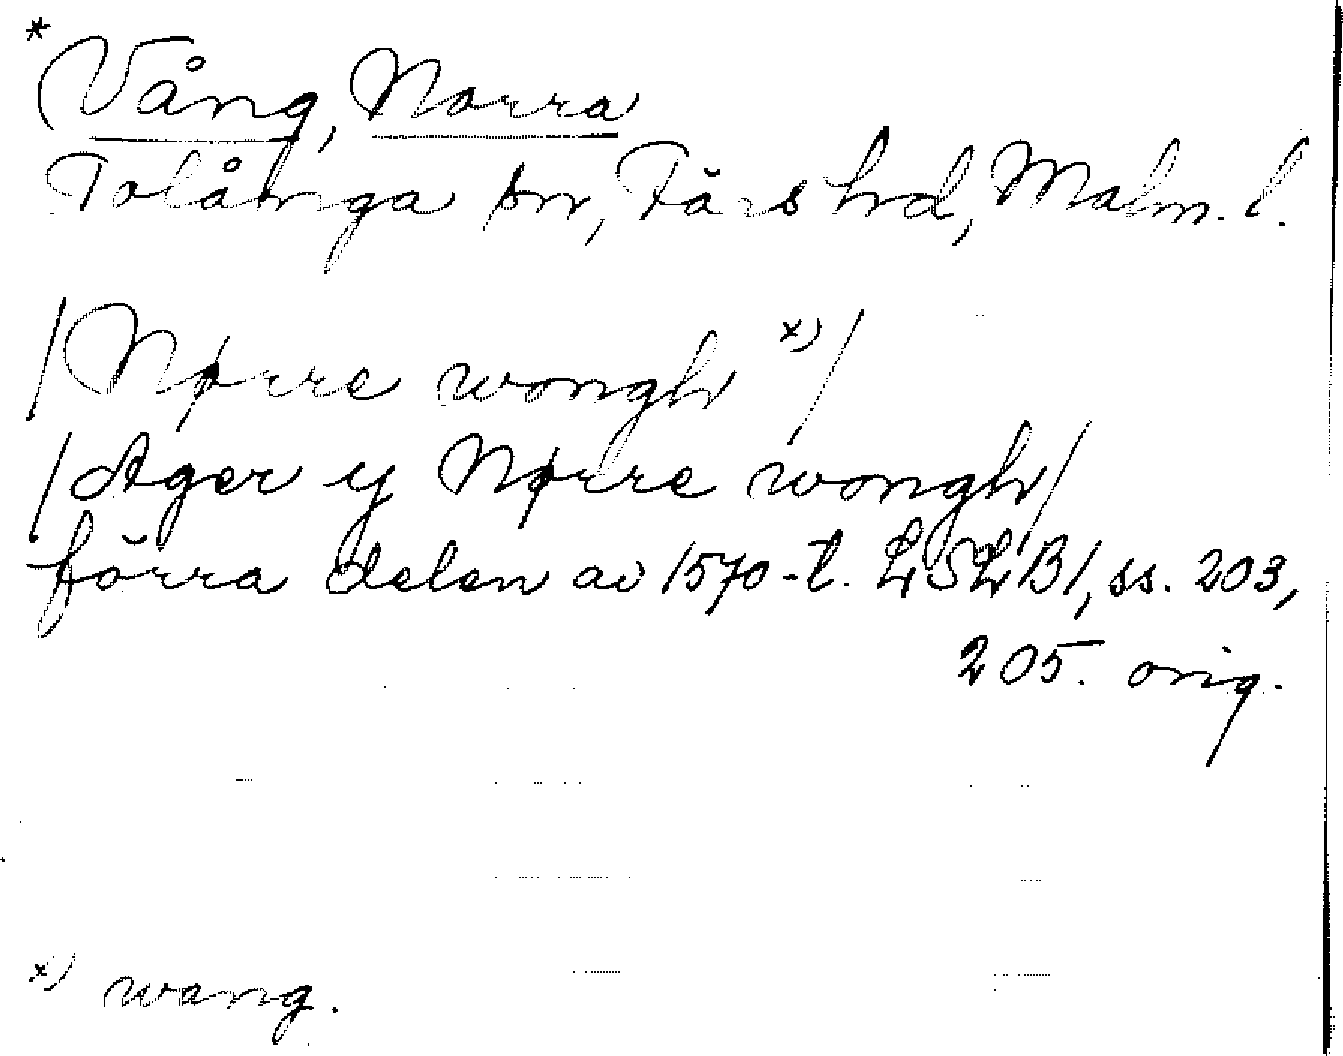 *Vång, Norra
Tolånga sn, Färs hd, Malm. l.
/Nørre wongh x)/
/Ager y Nørre wongh/
förra delen av 1570-t. LSLB1, ss. 203,
205. orig.
x) wang.